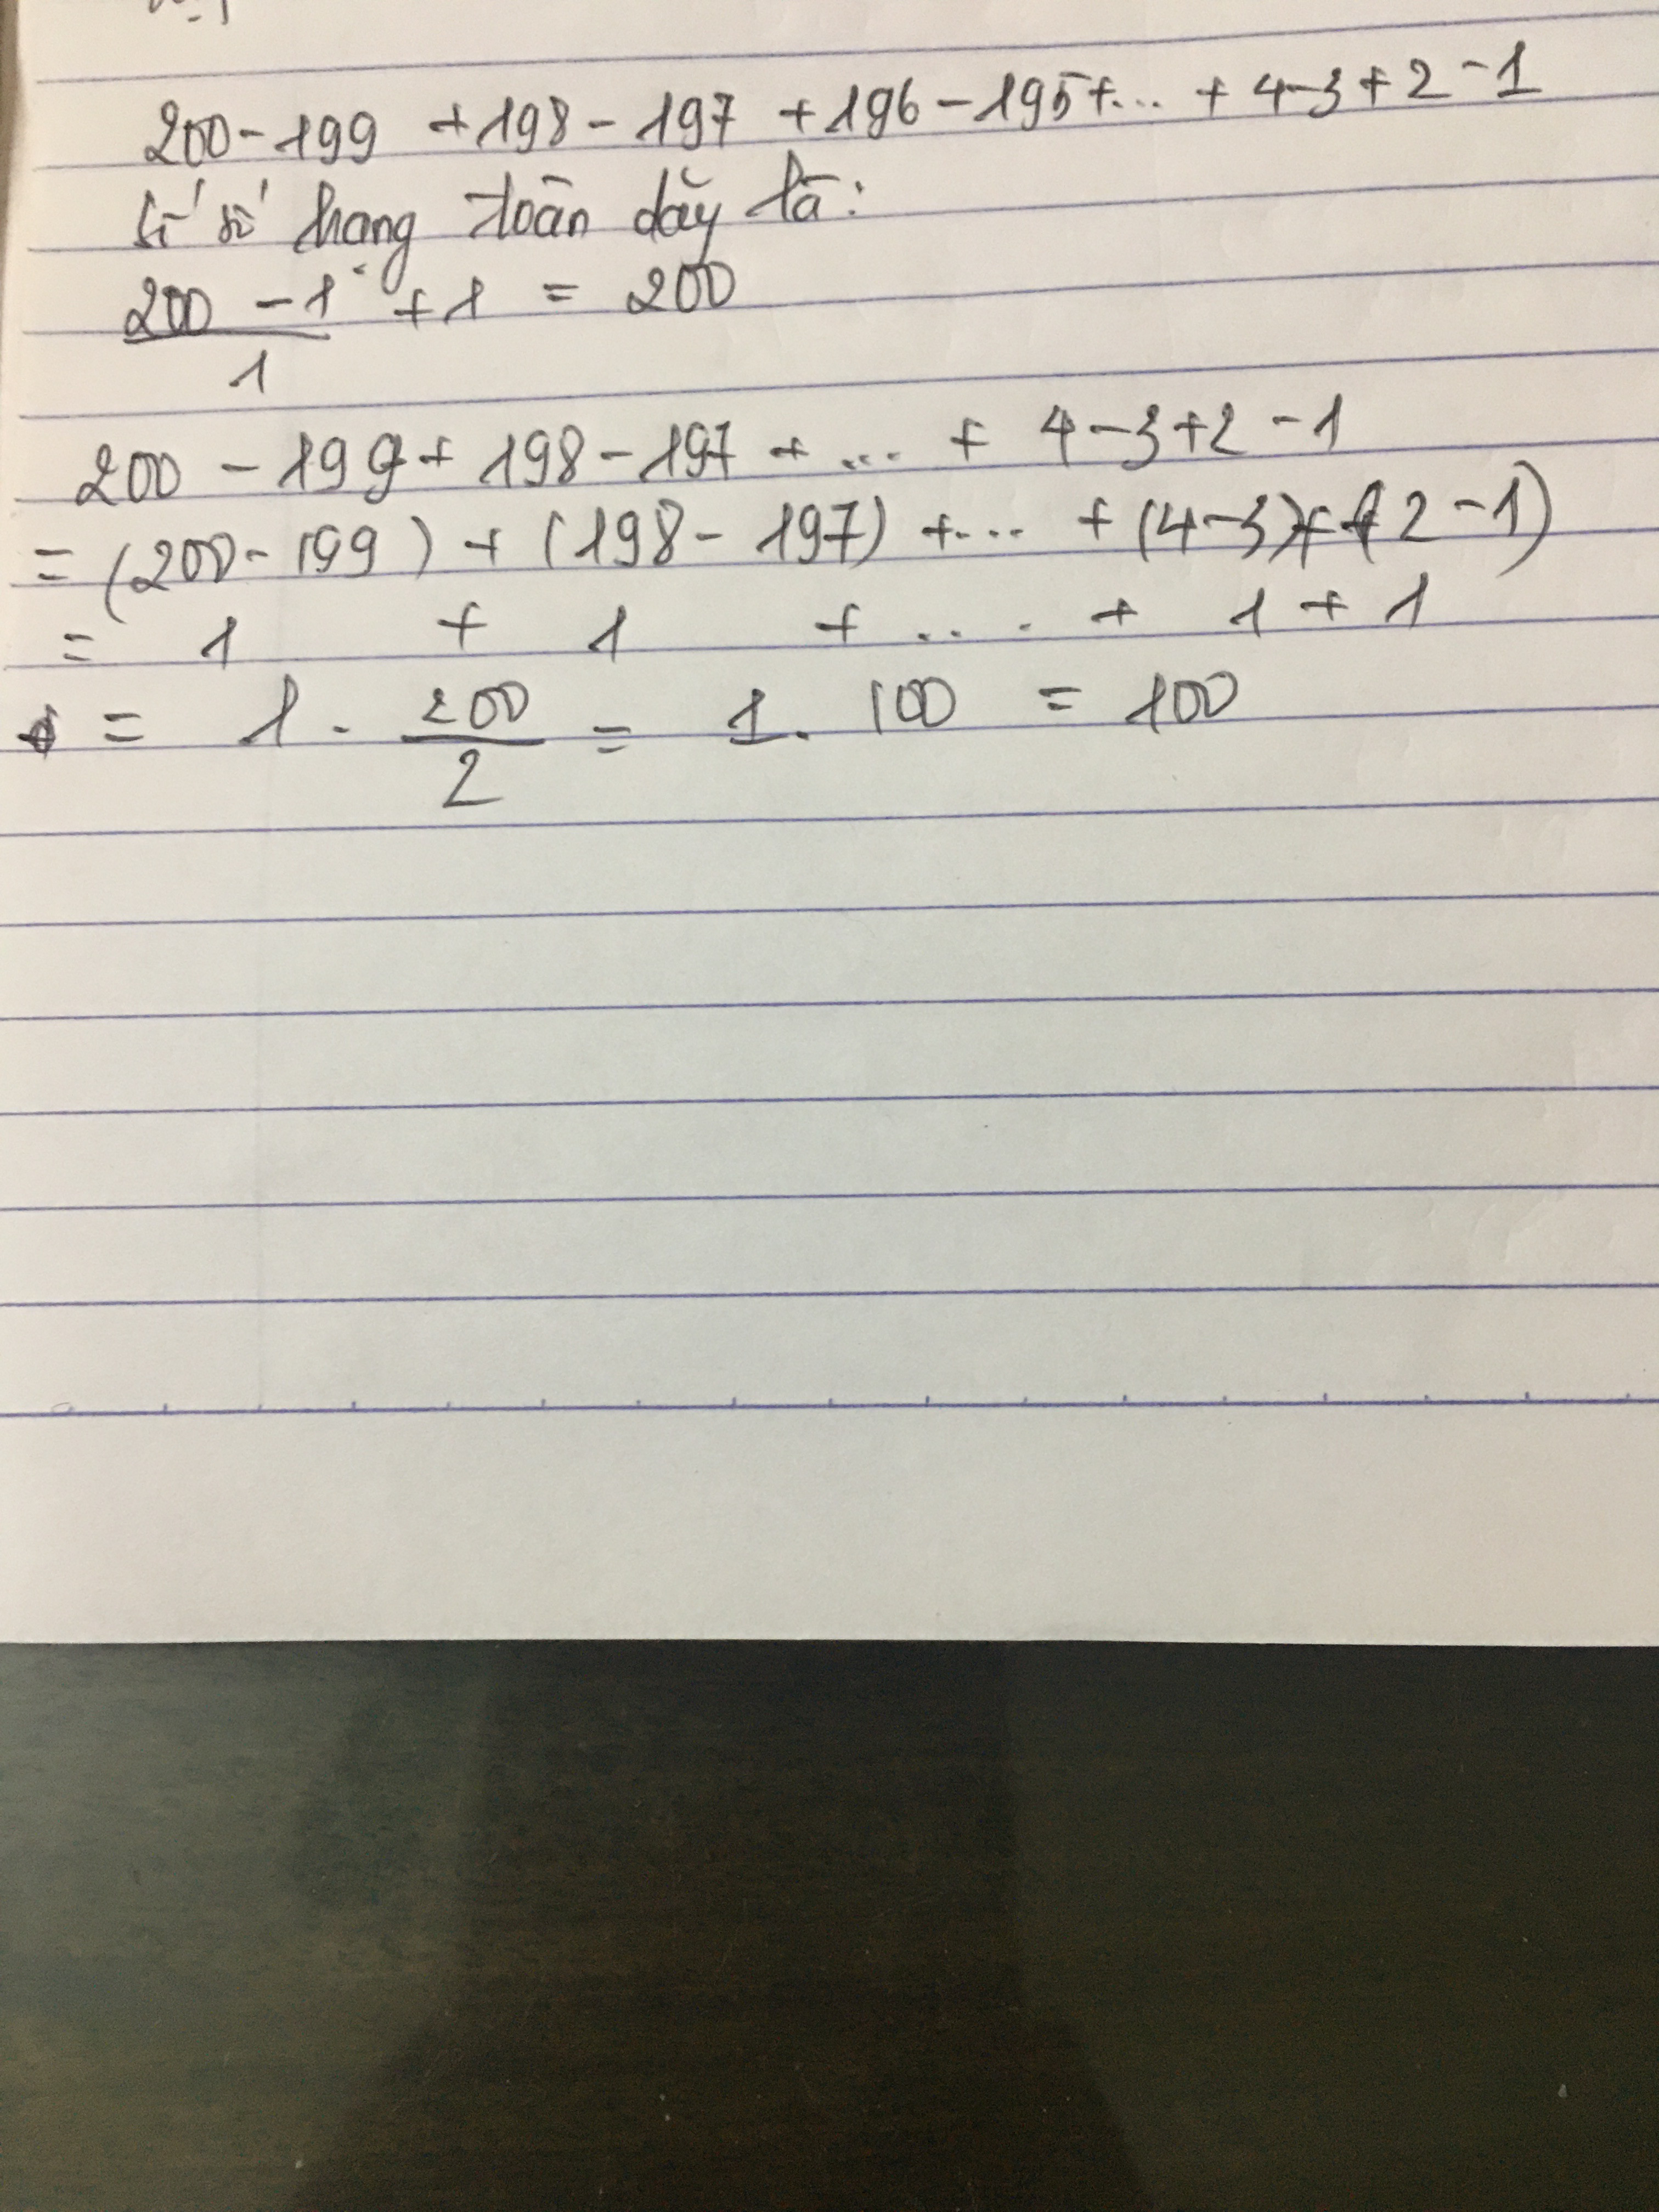 200 - 199 + 198 - 197 + 196 - 195 + ... + 4 - 3 + 2 - 1
Số số hạng toàn dãy là:
200 - 1 + 1 = 200
1
200 - 199 + 198 - 197 + ... + 4 - 3 + 2 - 1
= (200 - 199) + (198 - 197) + ... + (4 - 3) + (2 - 1)
= 1 + 1 + .... + 1 + 1
= 1 . 200 = 1 . 100 = 100
2